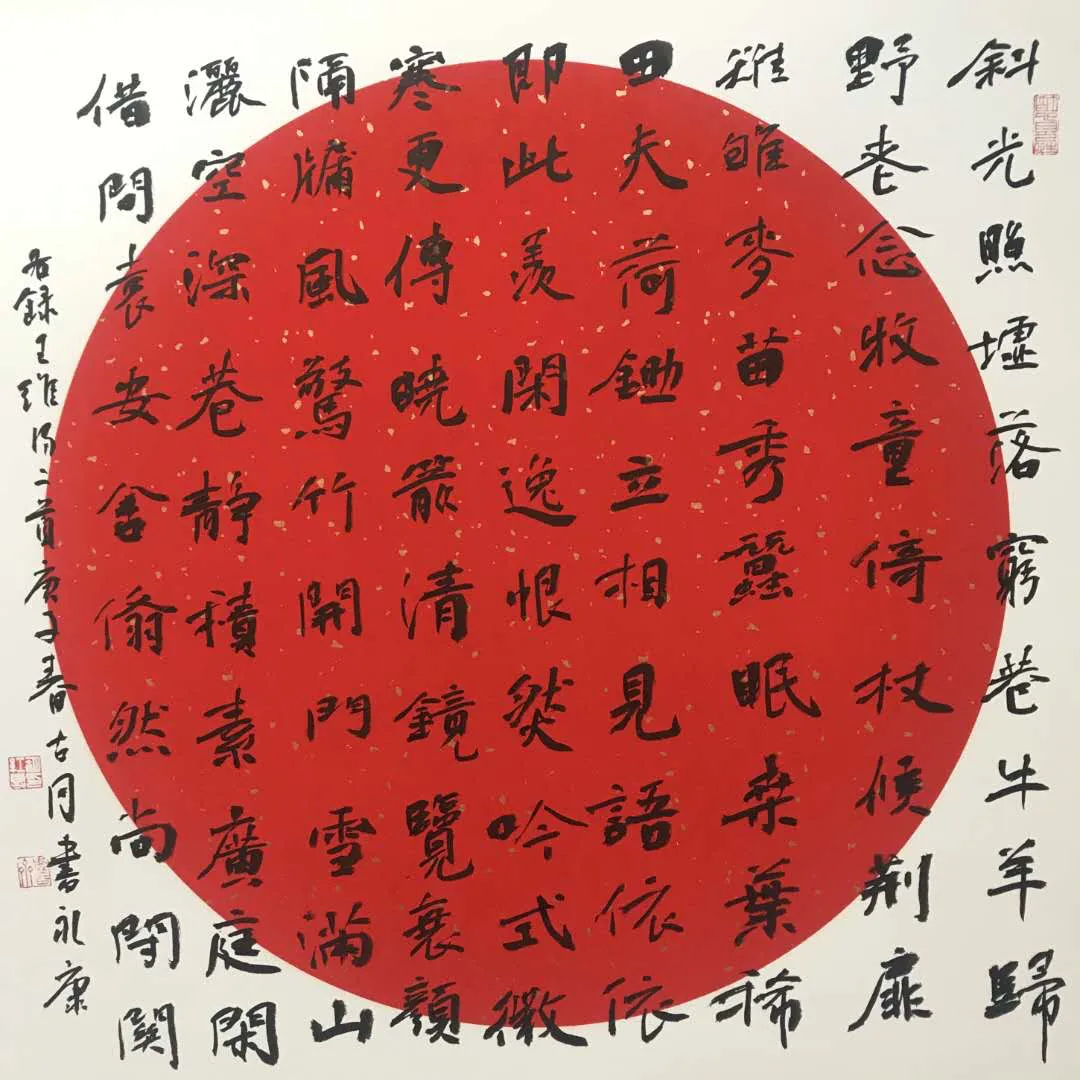 斜光照墟落窮巷牛羊歸
野老念牧童倚杖候荊扉
雉雊麥苗秀蠶眠桑葉稀
田夫荷鋤立相見語依依
即此羨閑逸悵然吟式微
寒更傳曉箭清鏡覽衰顏
隔牖風驚竹開門雪滿山
灑空深巷靜積素廣庭閑
借問袁安舍翛然尚閉關
右錄王維詩二首庚子春古同書礼康